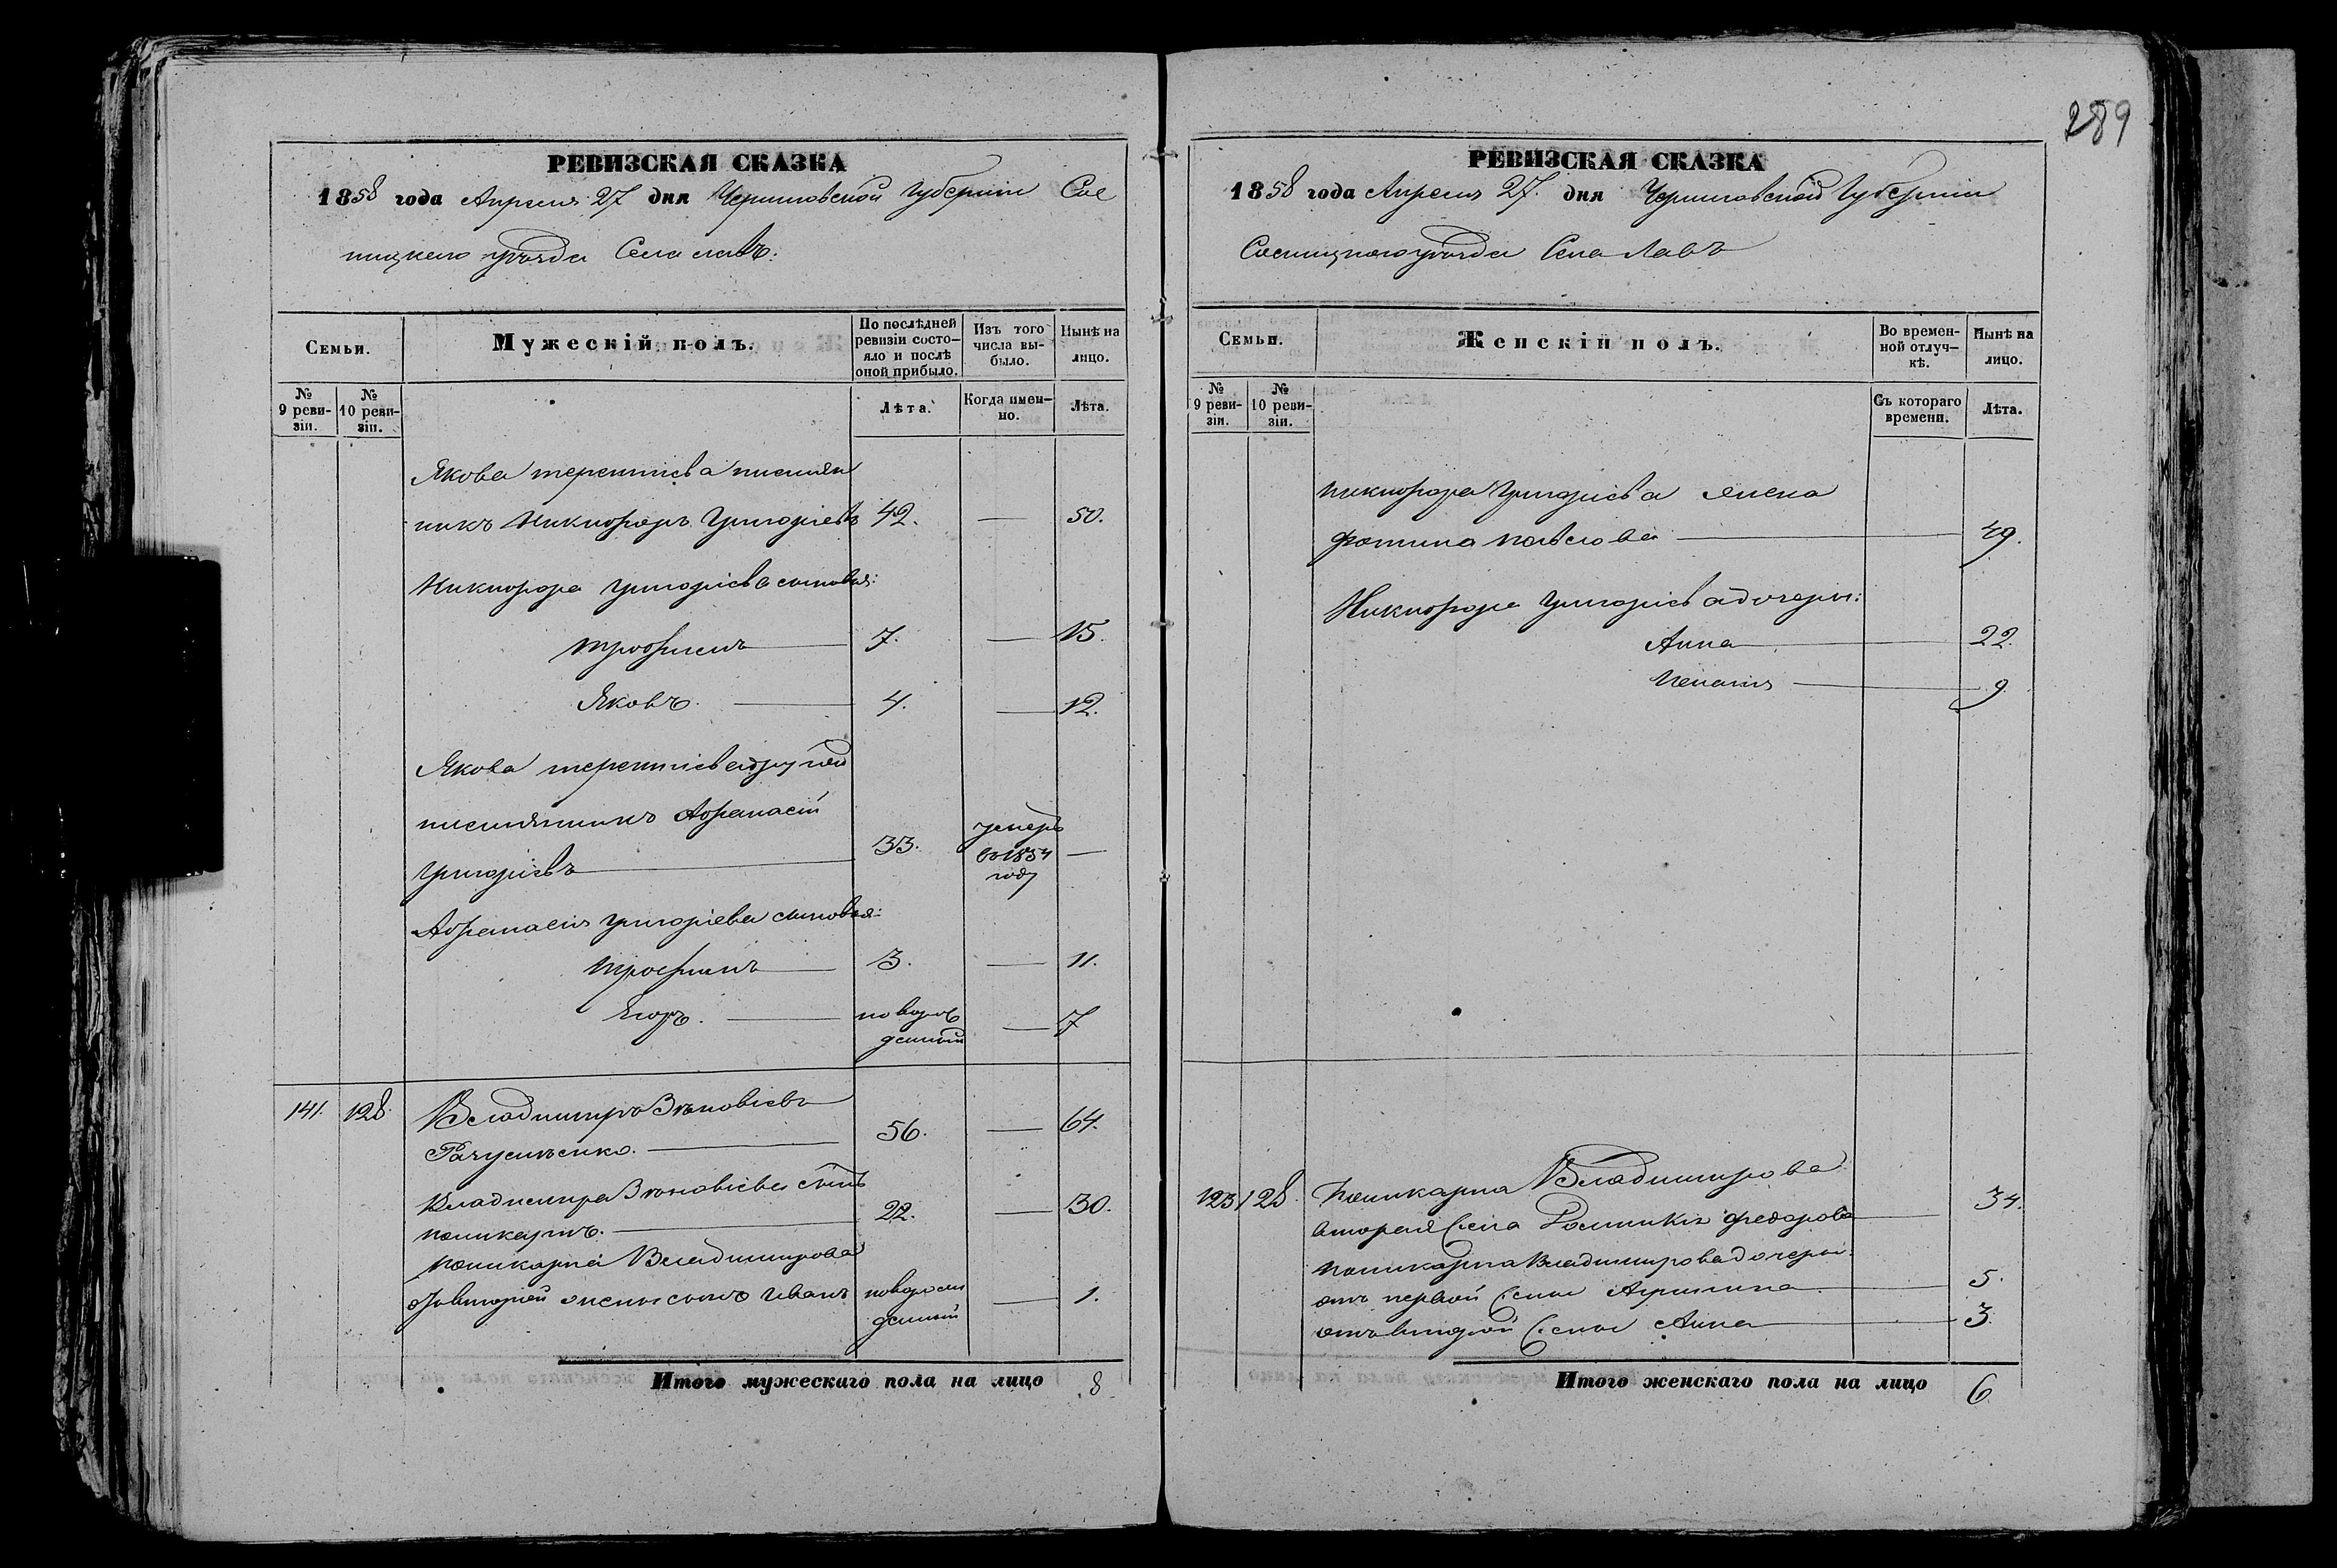 289
РЕВИЗСКАЯ СКАЗКА
1858 года Апреля 27 дня Черниговской Губернии Сос
ницкаго уѣзда Села Лавъ:
Семьи.
Мужескій полъ.
По послѣдней ревизіи состо-
яло и послѣ
оной прибыло.
Изъ того
числа вы-
было.
Нынѣ на
лицо.
№
9 реви-
зіи.
№
10 реви-
зіи.
Лѣта.
Когда имен-
но.
Лѣта.
Якова терентіева племян
никъ Никифоръ Григоріевъ 42. — 50.
Никифора Григоріева сыновья:
трофимъ — 7. — 15.
Яковъ. — 4. — 12.
Якова терентіева другой
племянникъ Афанасій
Григорьевъ — 33. умеръ въ 1854 году —
Афанасія Григоріева сыновья:
трофимъ — 3. — 11.
Егоръ. — новорож
денный — 7
141. 128. Владимиръ Зиновіевъ
56. — 64.
Владимира Зиновіева сынъ
поликарпъ. — 22. — 30.
поликарпа Владимирова
отъ второй жены сынъ Иванъ новорож
денный — 1.
Итого мужескаго пола на лицо 8
РЕВИЗСКАЯ СКАЗКА
1858 года Апреля 27. дня Черниговской Губерніи
Сосницкаго уѣзда Села Лавъ
Семьи.
Женскій полъ.
Во времен-
ной отлуч-
кѣ.
Нынѣ на
лицо.
№
9 реви-
зіи.
№
10 реви-
зіи.
Съ котораго
времени.
Лѣта.
никифора Григоріева жена
фотина павлова — 49.
Никифора Григоріева дочери:
Анна — 22.
— 9
123 128. Поликарпа Владимирова
вторая жена федорова — 34.
поликарпа Владимирова дочери:
отъ первой жены — 5.
отъ второй жены Анна — 3.
Итого женскаго пола на лицо 6